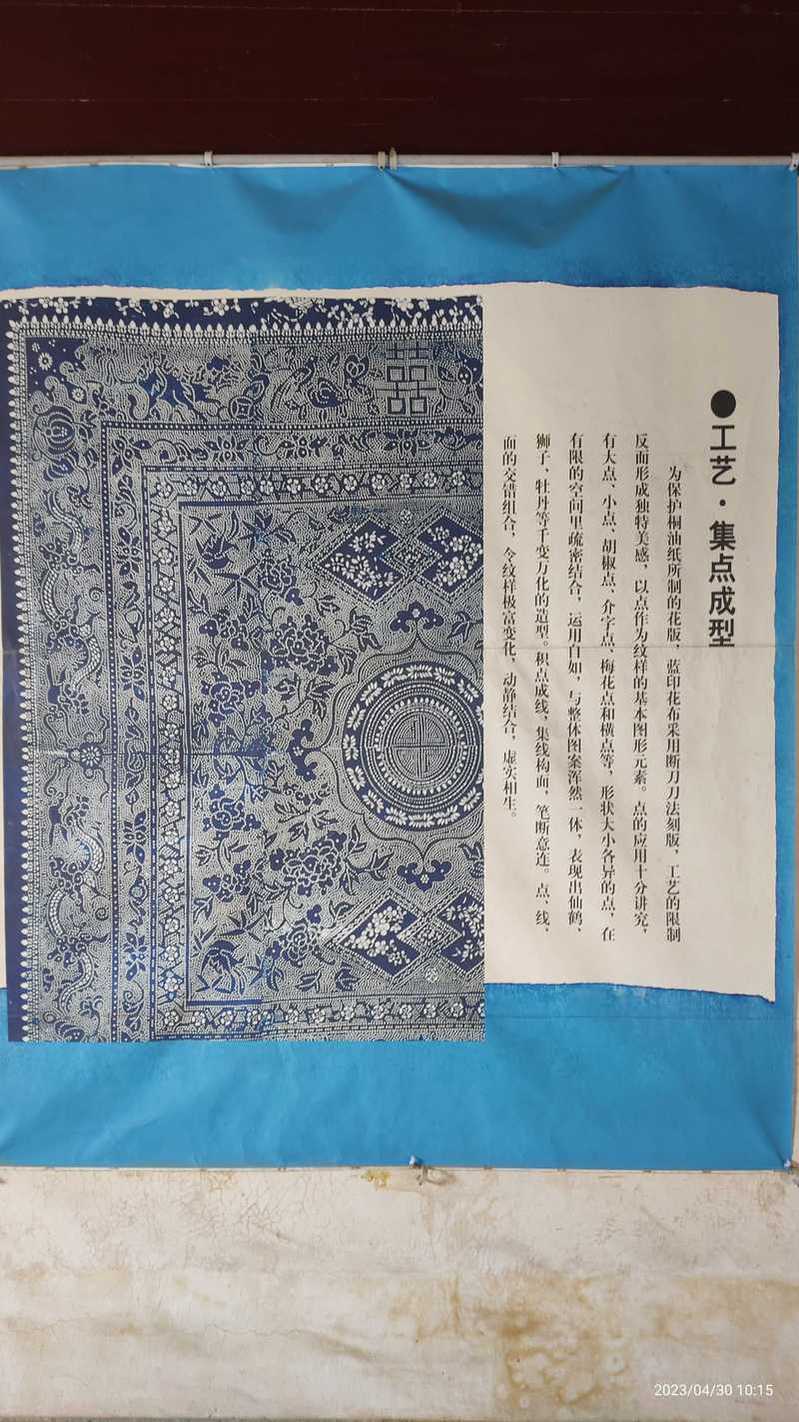 ●工艺·集点成型
为保护桐油纸所制的花版，蓝印花布采用断刀刀法刻版，工艺的限制
反而形成独特美感，以点作为纹样的基本图形元素。点的应用十分讲究，
有大点、小点、胡椒点、介字点、梅花点和横点等，形状大小各异的点，在
有限的空间里疏密结合，运用自如，与整体图案浑然一体，表现出仙鹤、
狮子、牡丹等千变万化的造型。积点成线，集线构面，笔断意连。点、线、
面的交错组合，令纹样极富变化，动静结合，虚实相生。
囍
2023/04/30 10:15